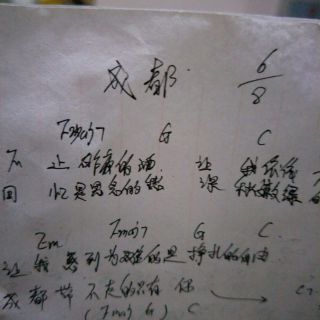 成都 6/8
Fmaj7 G C
让 昨夜的酒 让 我依依
回忆是思念的愁 深秋嫩绿
Em Fmaj7 G C
让我感到为难的是挣扎的自由
成都带不走的只有你
(Fmaj G) C